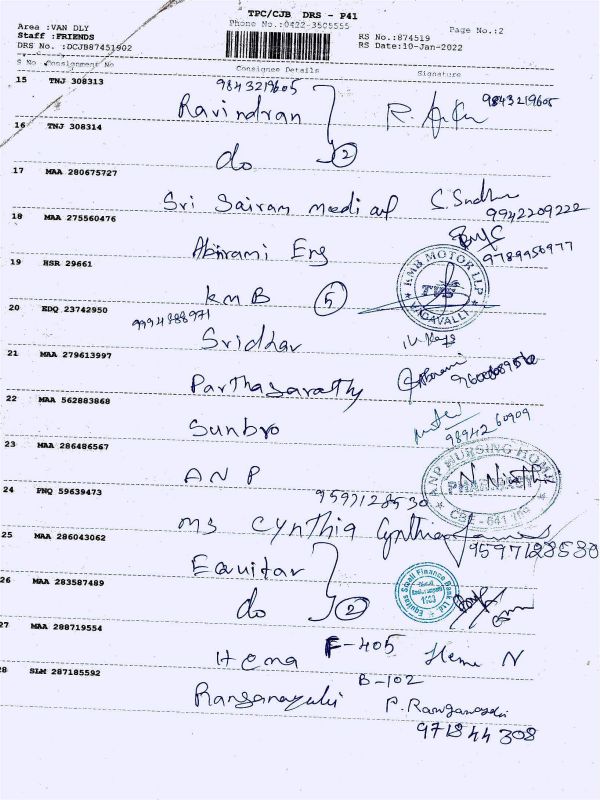 TPC/CJB DRS - P41
Area :VAN DLY
Phone No.:0422-3505555
Page No.:2
Staff :FRIENDS
RS No.:874519
DRS No. :DCJB87451902
RS Date:10-Jan-2022
S No Consignment No Consignee Details Signature
15 TNJ 308313
9843219605
Ravindran
9843219605
16 TNJ 308314
do 2
17 MAA 280675727
Sri Sairam Medical
9942209222
18 MAA 275560476
Abirami Eng
9789956977
19 HSR 29661
KMB 5
KMB MOTOR LLP
TVS
VADAVALLI
20 EDQ 23742950
9994888971
Sridhar
21 MAA 279613997
Parthasarathy
22 MAA 562883868
Sunbro
9894260909
23 MAA 286486567
ANP
ANP NURSING HOME
PHARMACY
24 PNQ 59639473
9597128530
Ms Cynthia Cynthia James
9597128530
25 MAA 286043062
Equitas
Equitas Small Finance Bank Ltd
26 MAA 283587489
do 2
27 MAA 288719554
Hema F-405 Hema N
28 SLM 287185592
B-102
Ranganayaki P. Ranganayaki
971844308